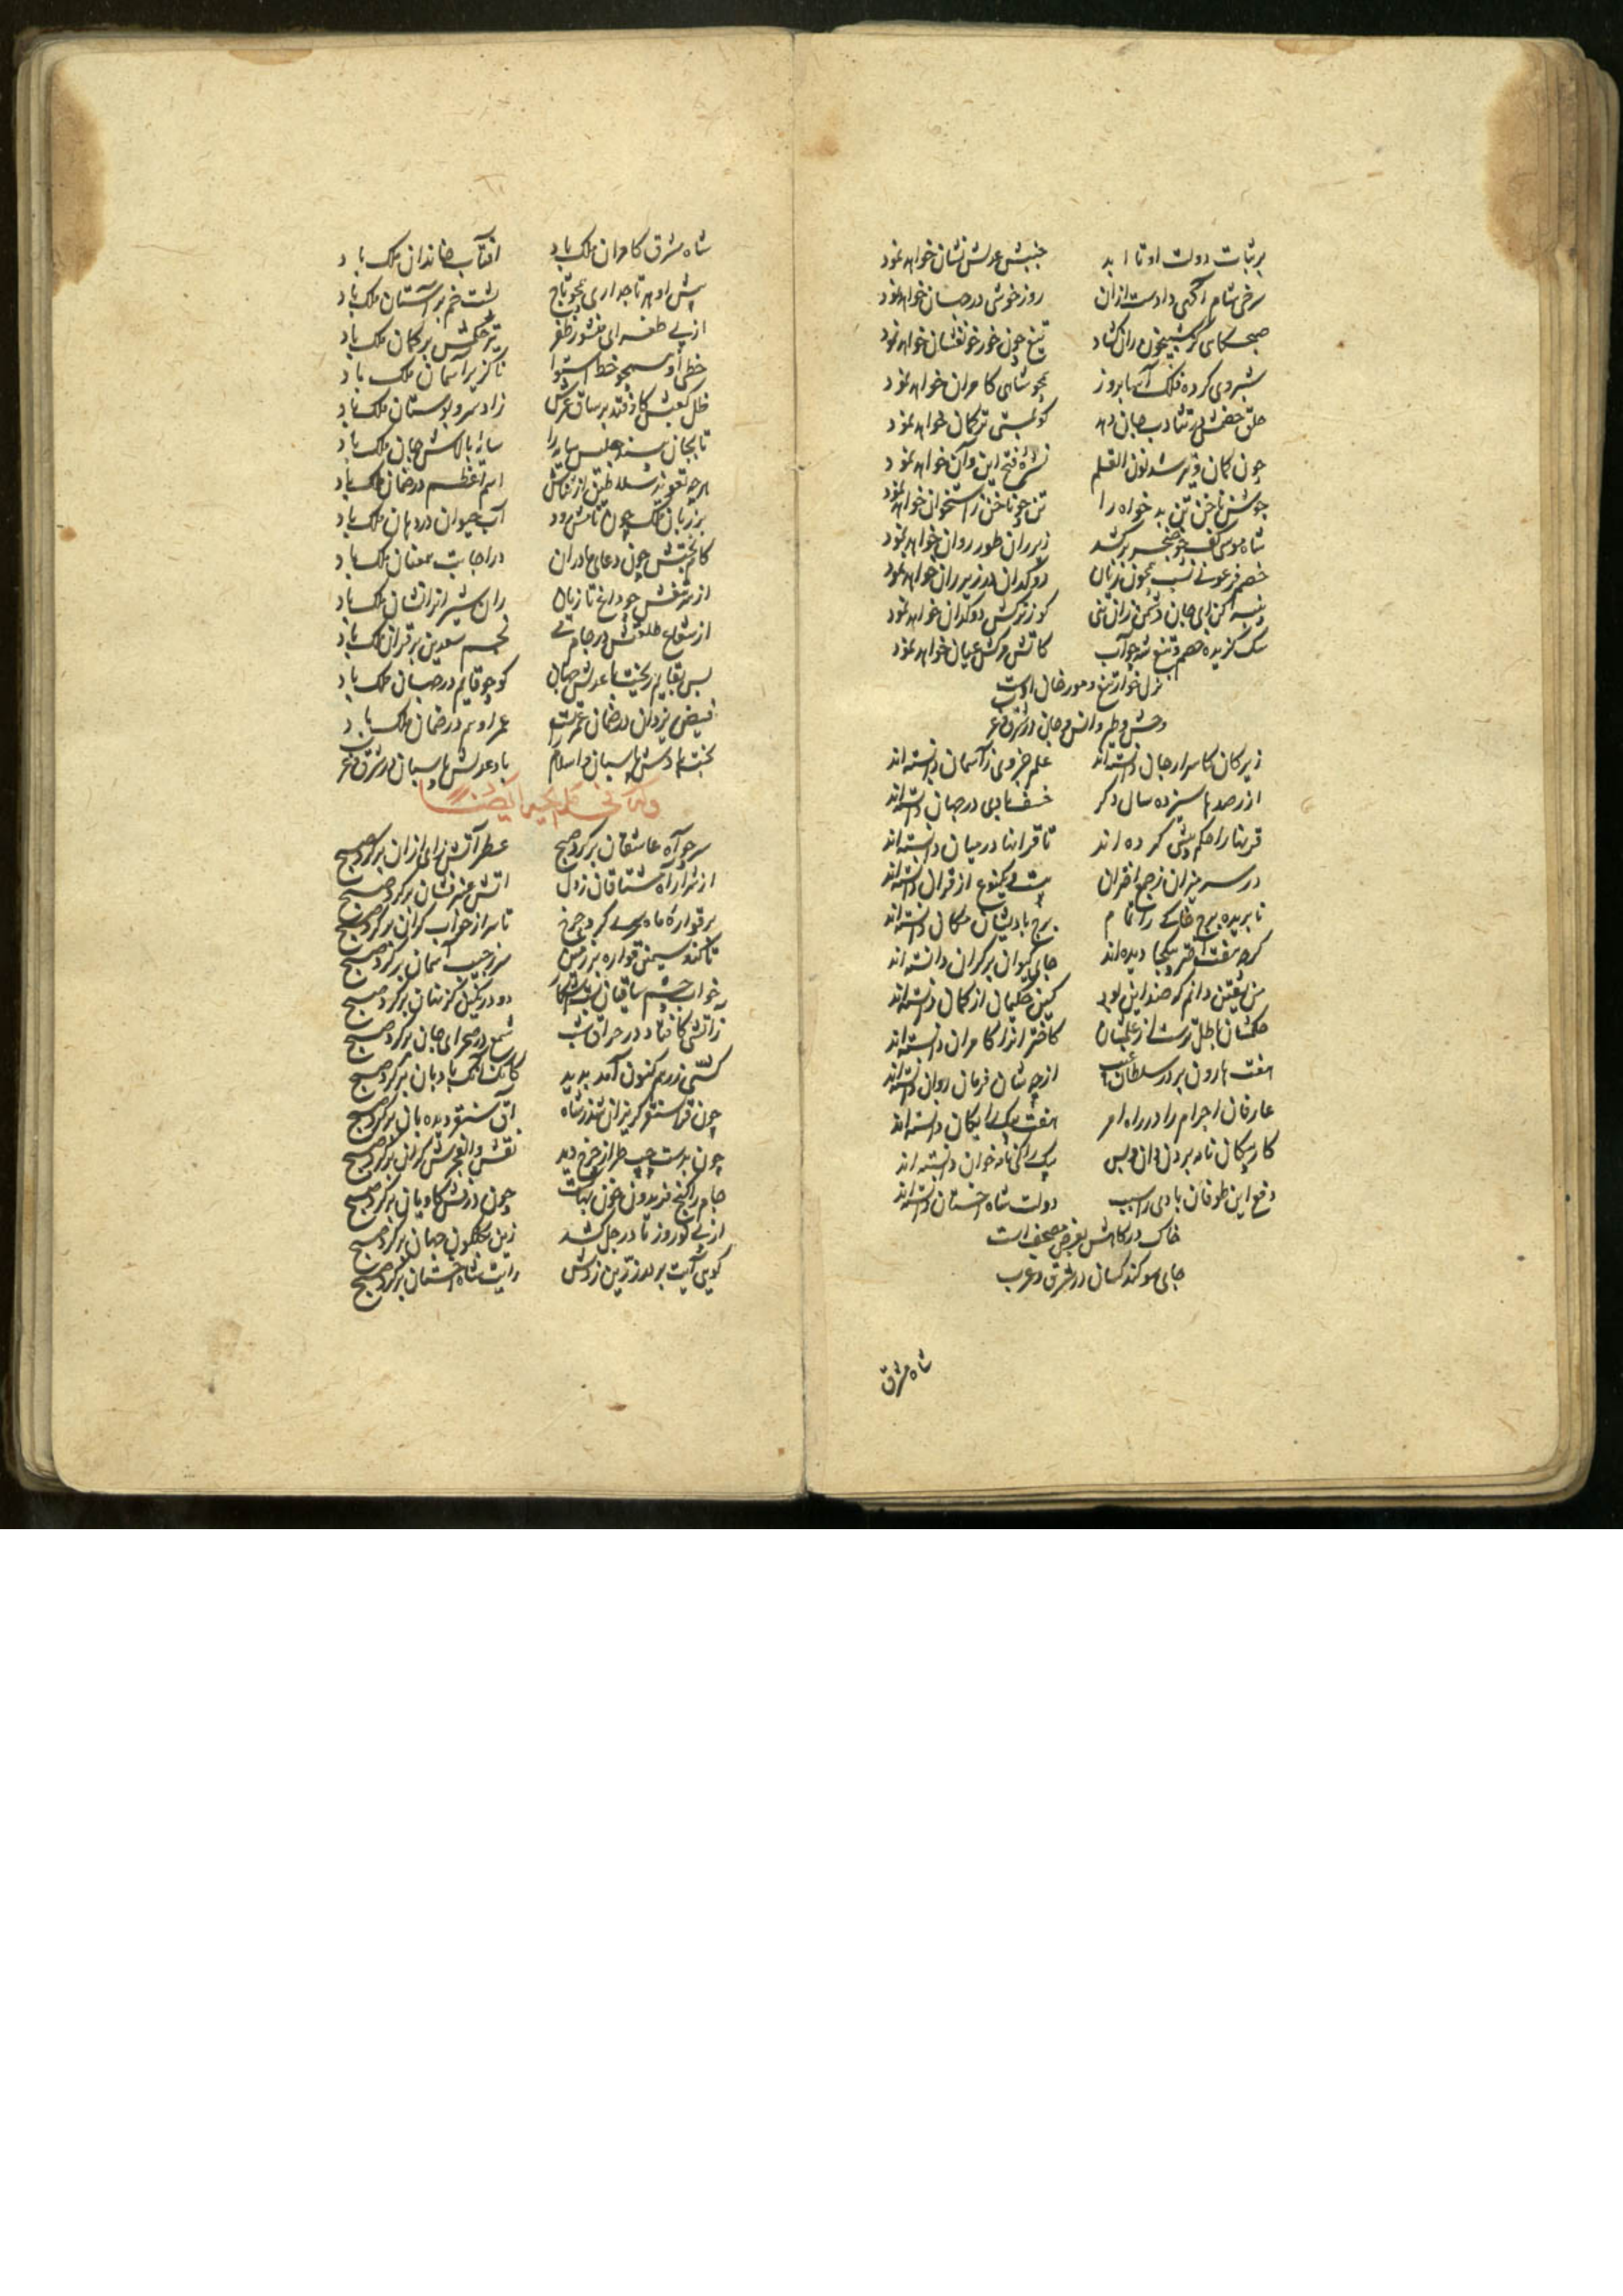 بر ثبات دولت او تا ابد جنبش عدلش نشان خواهد نمود
سرخی شام آگهی دادست ازان روز خوشی در جهان خواهد نمود
صبح کامی کز شبیخون ران گشاد تیغ چون خور خونفشان خواهد نمود
شبروی کرده فلک آسا بروز همچو شاهی کامران خواهد نمود
حلق خصمش در تثاوب جان دهد کو ترکمان خواهد نمود
چون کمان و تیر شد نون القلم نشره فتح این و آن خواهد نمود
جوشن ناخن تن بد خواه را تن چو ناخن ز استخوان خواهد نمود
شاه موسی کف چو خنجر برکشد زیر ران طور روان خواهد نمود
خصم فرعونی نسب همچون زنان دوکدان در زیر ران خواهد نمود
پنبه کن ای جان دشمن زان تنی کو ز ترکش دوکدان خواهد نمود
سگ گزیده خصم و تیغ شه چو آب کاتش مرگش عیان خواهد نمود
نزل خوار تیغ و مور خوان اوست
وحش و طیر و انس و جان در شرق و غرب
زیرکان کاسرار جان دانسته‌اند علم جزوی ز آسمان دانسته‌اند
از رصدها سیزده سال دگر خسف بادی در جهان دانسته‌اند
قرنها را حکم پیشی کرده اند تا قرانها در میان دانسته‌اند
در سر میزان ز جمع اختران بیست و یک نوع از قران دانسته‌اند
نابریده برج خاکی را تمام برج بادیشان مکان دانسته‌اند
گرچه هفت اختر به یکجا دیده‌اند جای کیوان بر کران دانسته اند
من یقین دانم که ضد این بود کین حکیمان از گمان دانسته‌اند
حکمشان باطل ترست از علمشان کاختران را کامران دانسته‌اند
هفت هارون بر در سلطان غیب از چه شان فرمان روان دانسته‌اند
عارفان اجرام را در راه امر هفت پیک رایگان دانسته‌اند
کار پیکان نامه بردن دان و بس پیک را کی نامه خوان دانسته اند
دفع این طوفان بادی را سبب دولت شاه اخستان دانسته‌اند
خاک درگاهش بعرض مصحف است
جای سوگند کسان در شرق و غرب
شاه مشرق
شاه مشرق کامران ملک باد آفتاب خاندان ملک باد
پیش او هر تاجداری همچو تاج پشت خم بر آستان ملک باد
از پی طغرای منشور ظفر تیر حکمش بر کمان ملک باد
خطی او همچو خط استوا ناگزیر آسمان ملک باد
ظل کعبش کاوفتد بر ساق عرش زاد سرو بوستان ملک باد
تا بجان بینند جنبش سایه را سایه بالاش جان ملک باد
هرچه تعویذ سلاطین از ثناش اسم اعظم در ضمان ملک باد
بر زبان ملک چون نامش رود آب حیوان در دهان ملک باد
کلک بختش چون دعای مادران در اجابت همعنان ملک باد
از سر تیغش چو داغ تازیان ران شیران ران‌نشان ملک باد
از شعاع طلعتش در جام می نجم سعدین بر قران ملک باد
بس بقایم ریخت با عدلش جهان کو چو قایم در جهان ملک باد
فیض یزدان در ضمان عمرست عمر او هم در ضمان ملک باد
بخت بادش پاسبان و اسلام باد عدلش پاسبان در شرق و غرب
سر چو آه عاشقان بر کرد صبح عطر آتش زای ازان بر کرد صبح
از شرار آه مشتاقان ز دل آتش عنبر فشان بر کرد صبح
بر قواره ماه می کرد چرخ تا سر از خواب گران بر کرد صبح
تا کند سیمین قواره بر زمین سر ز جیب آسمان بر کرد صبح
خواب چشم ساقیان بست آشکار دود در نیل کز نهان بر کرد صبح
زآتشی کافتاد در حراق شب شمع در صحرای جان بر کرد صبح
کشتی زر هم کنون آمد پدید کانک آنک بادبان بر کرد صبح
چون قراسنقر گریزان شد ز شاه آق سنقر دیده بان بر کرد صبح
چون بدست چپ طراز چرخ دید نقش والفجرش بر کرد صبح
جام را گنج فریدون خونبهاست چون درفش کاویان بر کرد صبح
از پی نوروز تا در جل کشد زین بگلگون جهان بر کرد صبح
گویی آیت بر در زرین زدش رایت شاه اخستان بر کرد صبح